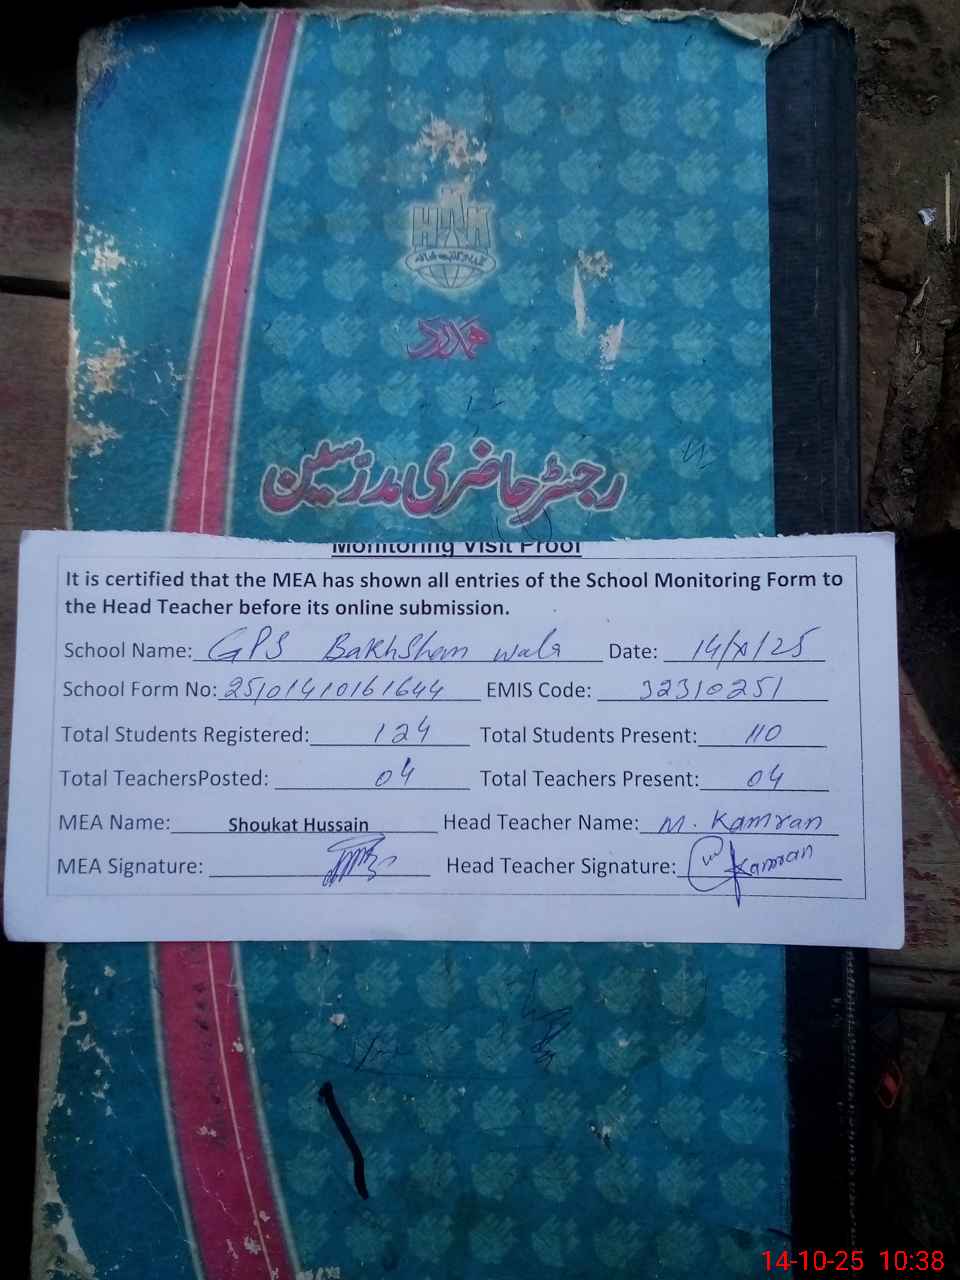 HAK
ہمدرد
رجسٹر حاضری مدرسین
Monitoring Visit Proof
It is certified that the MEA has shown all entries of the School Monitoring Form to
the Head Teacher before its online submission.
School Name: GPS Bakhshan wala Date: 14/X/25
School Form No: 25101410161644 EMIS Code: 32310251
Total Students Registered: 124 Total Students Present: 110
Total TeachersPosted: 04 Total Teachers Present: 04
MEA Name: Shoukat Hussain Head Teacher Name: M. Kamran
MEA Signature: Head Teacher Signature: Kamran
14-10-25 10:38